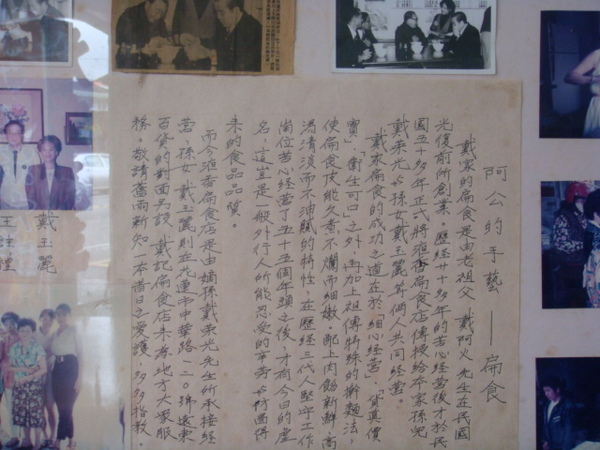 阿公的手藝——扁食
戴家的扁食是由老祖父 戴阿火 先生在民國
光復前所創業，歷經廿十多年的苦心經營後才於民
國五十多年正式將液香扁食店傳授給卒家孫兒
戴榮光與孫女戴玉麗等倆人共同經營。
戴家扁食的成功之道在於「細心經營」「貨真價
實」、衛生可口之外，再加上祖傳特殊的擀麵法，
使扁食皮能久煮不爛而細嫩，配上肉餡新鮮、高
湯清淡而不油膩的特性，在歷經三代人堅守工作
崗位苦心經營了五十五個年頭之後，才有今日的盛
名，這豈是一般外行人所能忍受的辛苦與得
來的食品品質。
而今液香扁食店是由嫡孫戴榮光先生所承接經
營，孫女 戴玉麗則在花蓮市中華路一二〇號遠東
百貨的對面另設 戴記扁食店來為地方大眾服
務。敬請舊雨新知一本昔日之愛護，多多指教。
戴玉麗